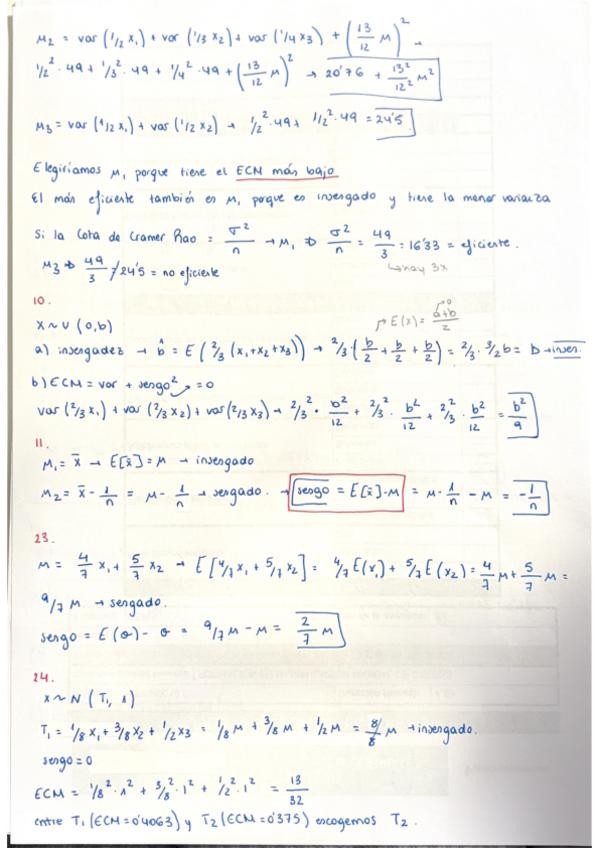 μ₂ = var (1/2 x₁) + var (1/3 x₂) + var (1/4 x₃) + (13/12 μ)² →
1/2² · 49 + 1/3² · 49 + 1/4² · 49 + (13/12 μ)² → 20'76 + 13²/12² μ²
μ₃ = var (1/2 x₁) + var (1/2 x₂) → 1/2² · 49 + 1/2² · 49 = 24'5
Elegiríamos μ₁ porque tiene el ECM más bajo
El más eficiente también es μ₁ porque es insesgado y tiene la menor varianza
Si la Cota de Cramer Rao = σ²/n → μ₁ ⇒ σ²/n = 49/3 = 16'33 = eficiente.
↳ hay 3x
μ₃ ⇒ 49/3 ≠ 24'5 = no eficiente
10.
x ~ U (0,b)
E(x) = a+b/2
a) insesgadez → b̂ = E (2/3 (x₁+x₂+x₃)) → 2/3 · (b/2 + b/2 + b/2) = 2/3 · 3/2 b = b → inses.
b) ECM = var + sesgo² = 0
var (2/3 x₁) + var (2/3 x₂) + var (2/3 x₃) → 2/3² · b²/12 + 2/3² · b²/12 + 2/3² · b²/12 = b²/9
11.
μ₁ = x̄ → E[x̄] = μ → insesgado
μ₂ = x̄ - 1/n = μ - 1/n → sesgado. → sesgo = E[x̄] - μ = μ - 1/n - μ = -1/n
23.
μ = 4/7 x₁ + 5/7 x₂ → E[4/7 x₁ + 5/7 x₂] = 4/7 E(x₁) + 5/7 E(x₂) = 4/7 μ + 5/7 μ =
9/7 μ → sesgado.
sesgo = E(θ) - θ = 9/7 μ - μ = 2/7 μ
24.
x ~ N (T₁, 1)
T₁ = 1/8 x₁ + 3/8 x₂ + 1/2 x₃ = 1/8 μ + 3/8 μ + 1/2 μ = 8/8 μ → insesgado.
sesgo = 0
ECM = 1/8² · 1² + 3/8² · 1² + 1/2² · 1² = 13/32
entre T₁ (ECM = 0'4063) y T₂ (ECM = 0'375) escogemos T₂.